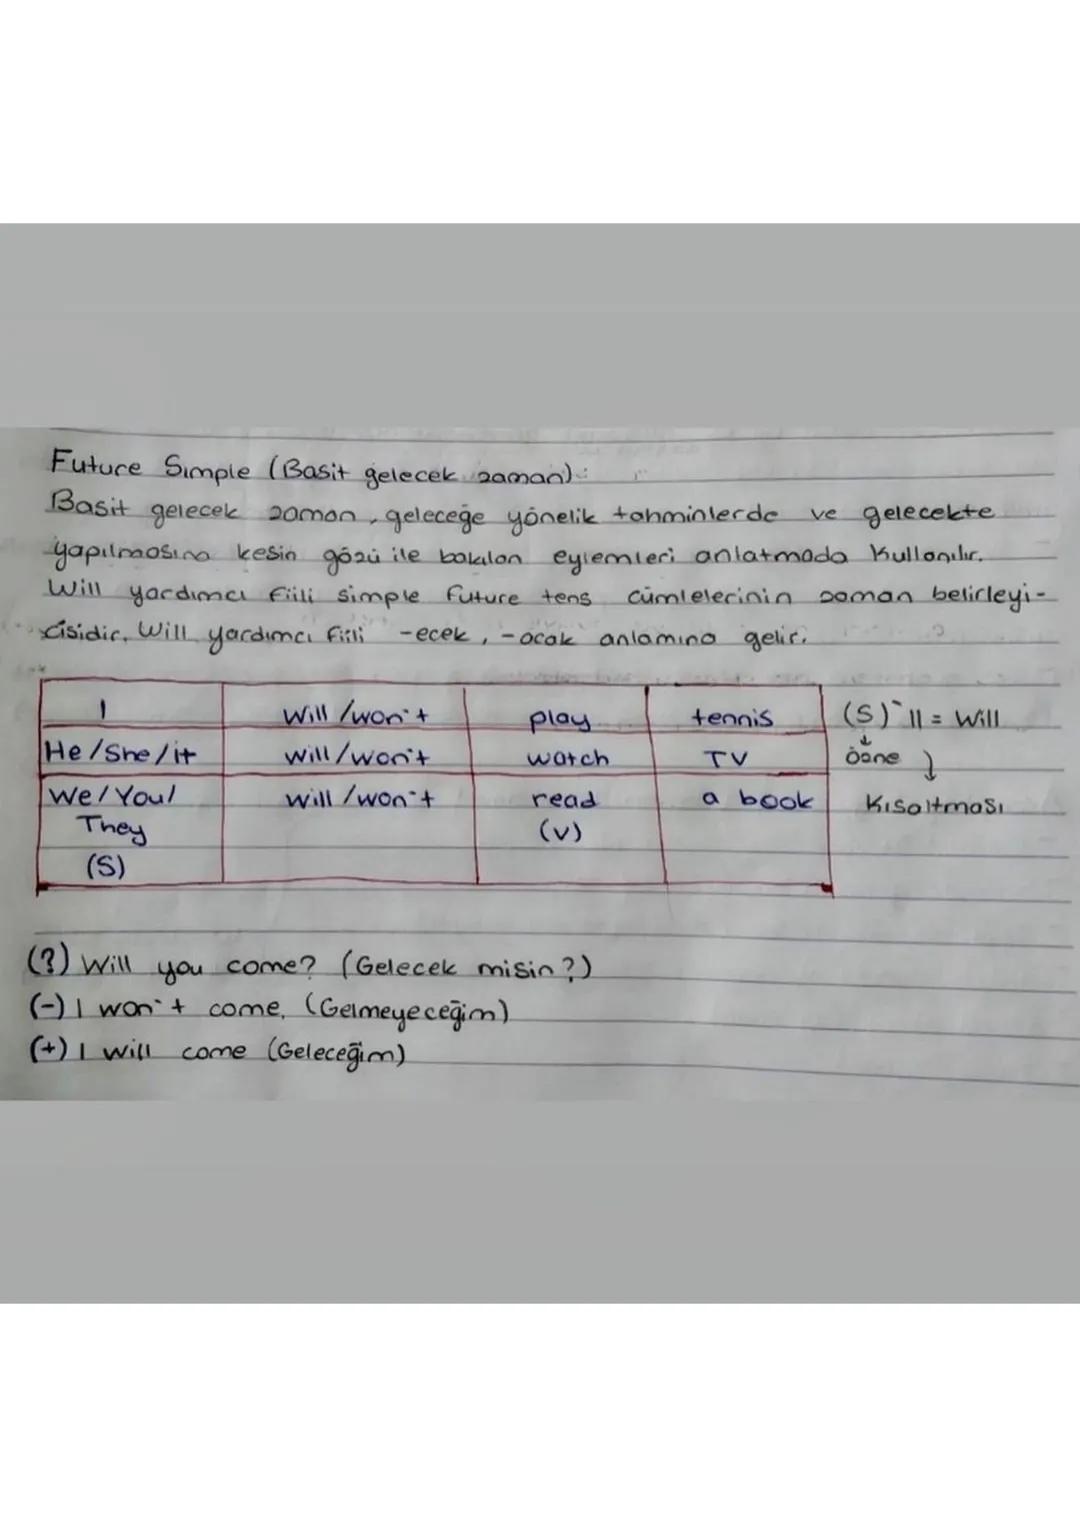 Future Simple (Basit gelecek zaman):
Basit gelecek zaman, geleceğe yönelik tahminlerde ve gelecekte
yapılmasına kesin gözü ile bakılan eylemleri anlatmada kullanılır.
Will yardımcı fiili simple future tens cümlelerinin zaman belirleyi-
cisidir. Will yardımcı fiili -ecek, -acak anlamına gelir.
I will/won't play tennis (S)'ll = will
He/She/it will/won't watch TV özne
We/You/ will/won't read a book Kısaltması
They (v)
(S)
(?) Will you come? (Gelecek misin?)
(-) I won't come. (Gelmeyeceğim)
(+) I will come (Geleceğim)